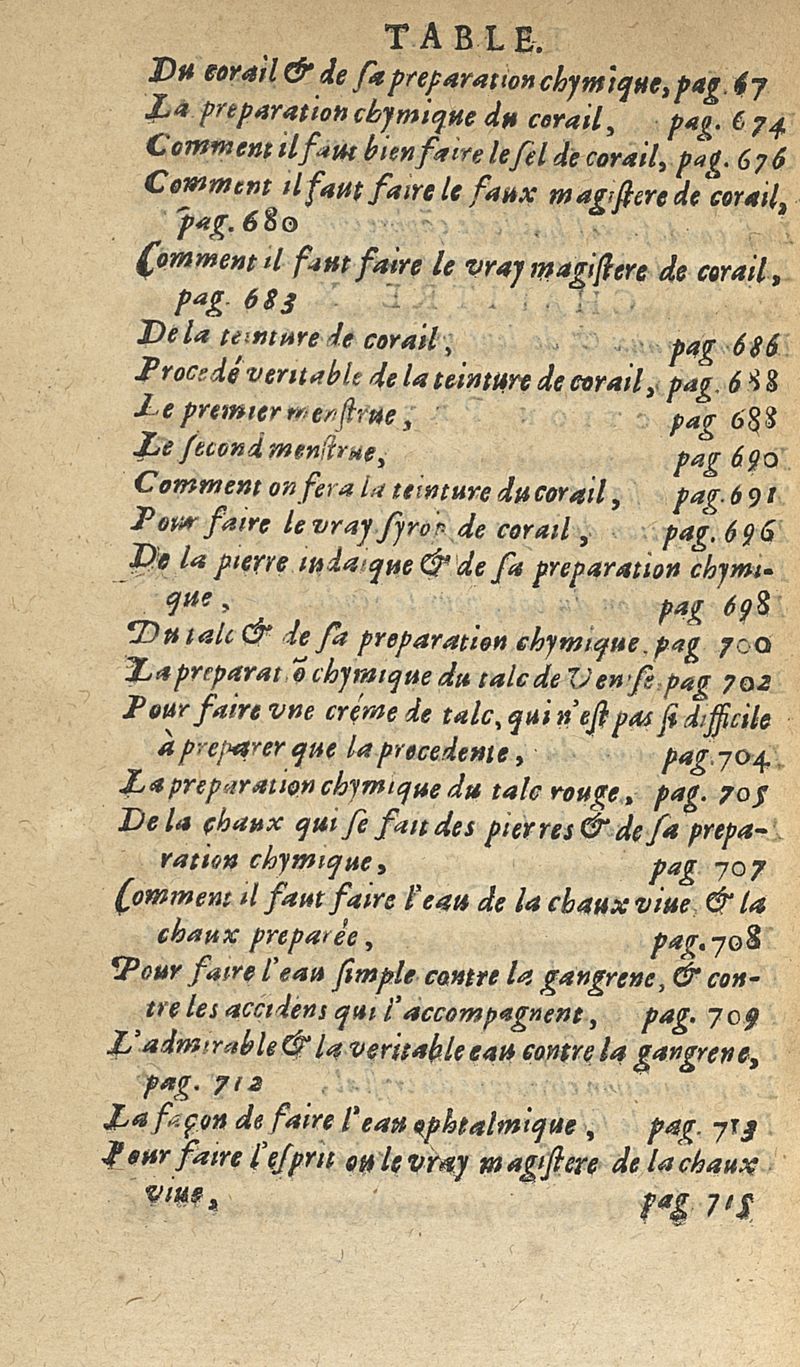 TABLE.
Du corail & de sa preparation chymique, pag. 67
La preparation chymique du corail, pag. 674
Comment il faut bien faire le sel de corail, pag. 676
Comment il faut faire le faux magistere de corail,
pag. 680
Comment il faut faire le vray magistere de corail,
pag. 683
De la teinture de corail, pag 686
Procedé veritable de la teinture de corail, pag. 688
Le premier menstrue, pag 688
Le second menstrue, pag 690
Comment on fera la teinture du corail, pag. 691
Pour faire le vray syrop de corail, pag. 696
De la pierre iudaique & de sa preparation chymi-
que, pag 698
Du talc & de sa preparation chymique. pag 700
La preparatiõ chymique du talc de Venise. pag 702
Pour faire vne créme de talc, qui n'est pas si difficile
à preparer que la precedente, pag. 704
La preparation chymique du talc rouge, pag. 705
De la chaux qui se fait des pierres & de sa prepa-
ration chymique, pag 707
Comment il faut faire l'eau de la chaux viue & la
chaux preparée, pag. 708
Pour faire l'eau simple contre la gangrene, & con-
tre les accidens qui l'accompagnent, pag. 709
L'admirable & la veritable eau contre la gangrene,
pag. 712
La façon de faire l'eau ophtalmique, pag. 713
Pour faire l'esprit ou le vray magistere de la chaux
viue, pag 715